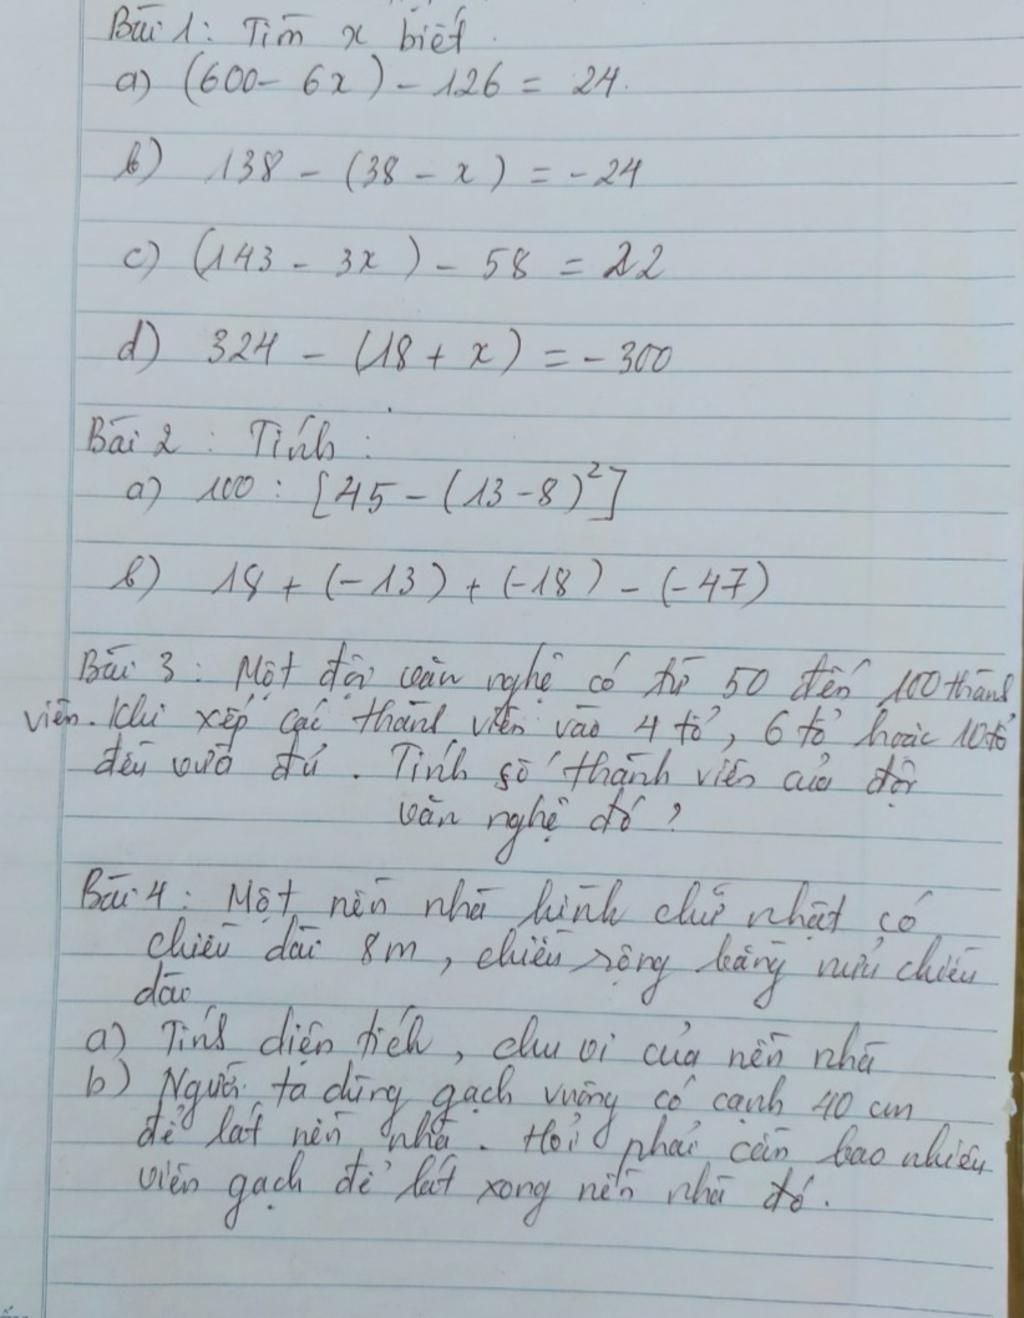 Bài 1: Tìm x biết.
a) (600 - 6x) - 126 = 24.
b) 138 - (38 - x) = -24
c) (143 - 3x) - 58 = 22
d) 324 - (18 + x) = -300
Bài 2: Tính:
a) 100 : [45 - (13 - 8)²]
b) 18 + (-13) + (-18) - (-47)
Bài 3: Một đội văn nghệ có từ 50 đến 100 thành
viên. Khi xếp các thành viên vào 4 tổ, 6 tổ hoặc 10 tổ
đều vừa đủ. Tính số thành viên của đội
văn nghệ đó?
Bài 4: Một nền nhà hình chữ nhật có
chiều dài 8m, chiều rộng bằng nửa chiều
dài
a) Tính diện tích, chu vi của nền nhà
b) Người ta dùng gạch vuông có cạnh 40 cm
để lát nền nhà. Hỏi phải cần bao nhiêu
viên gạch để lát xong nền nhà đó.